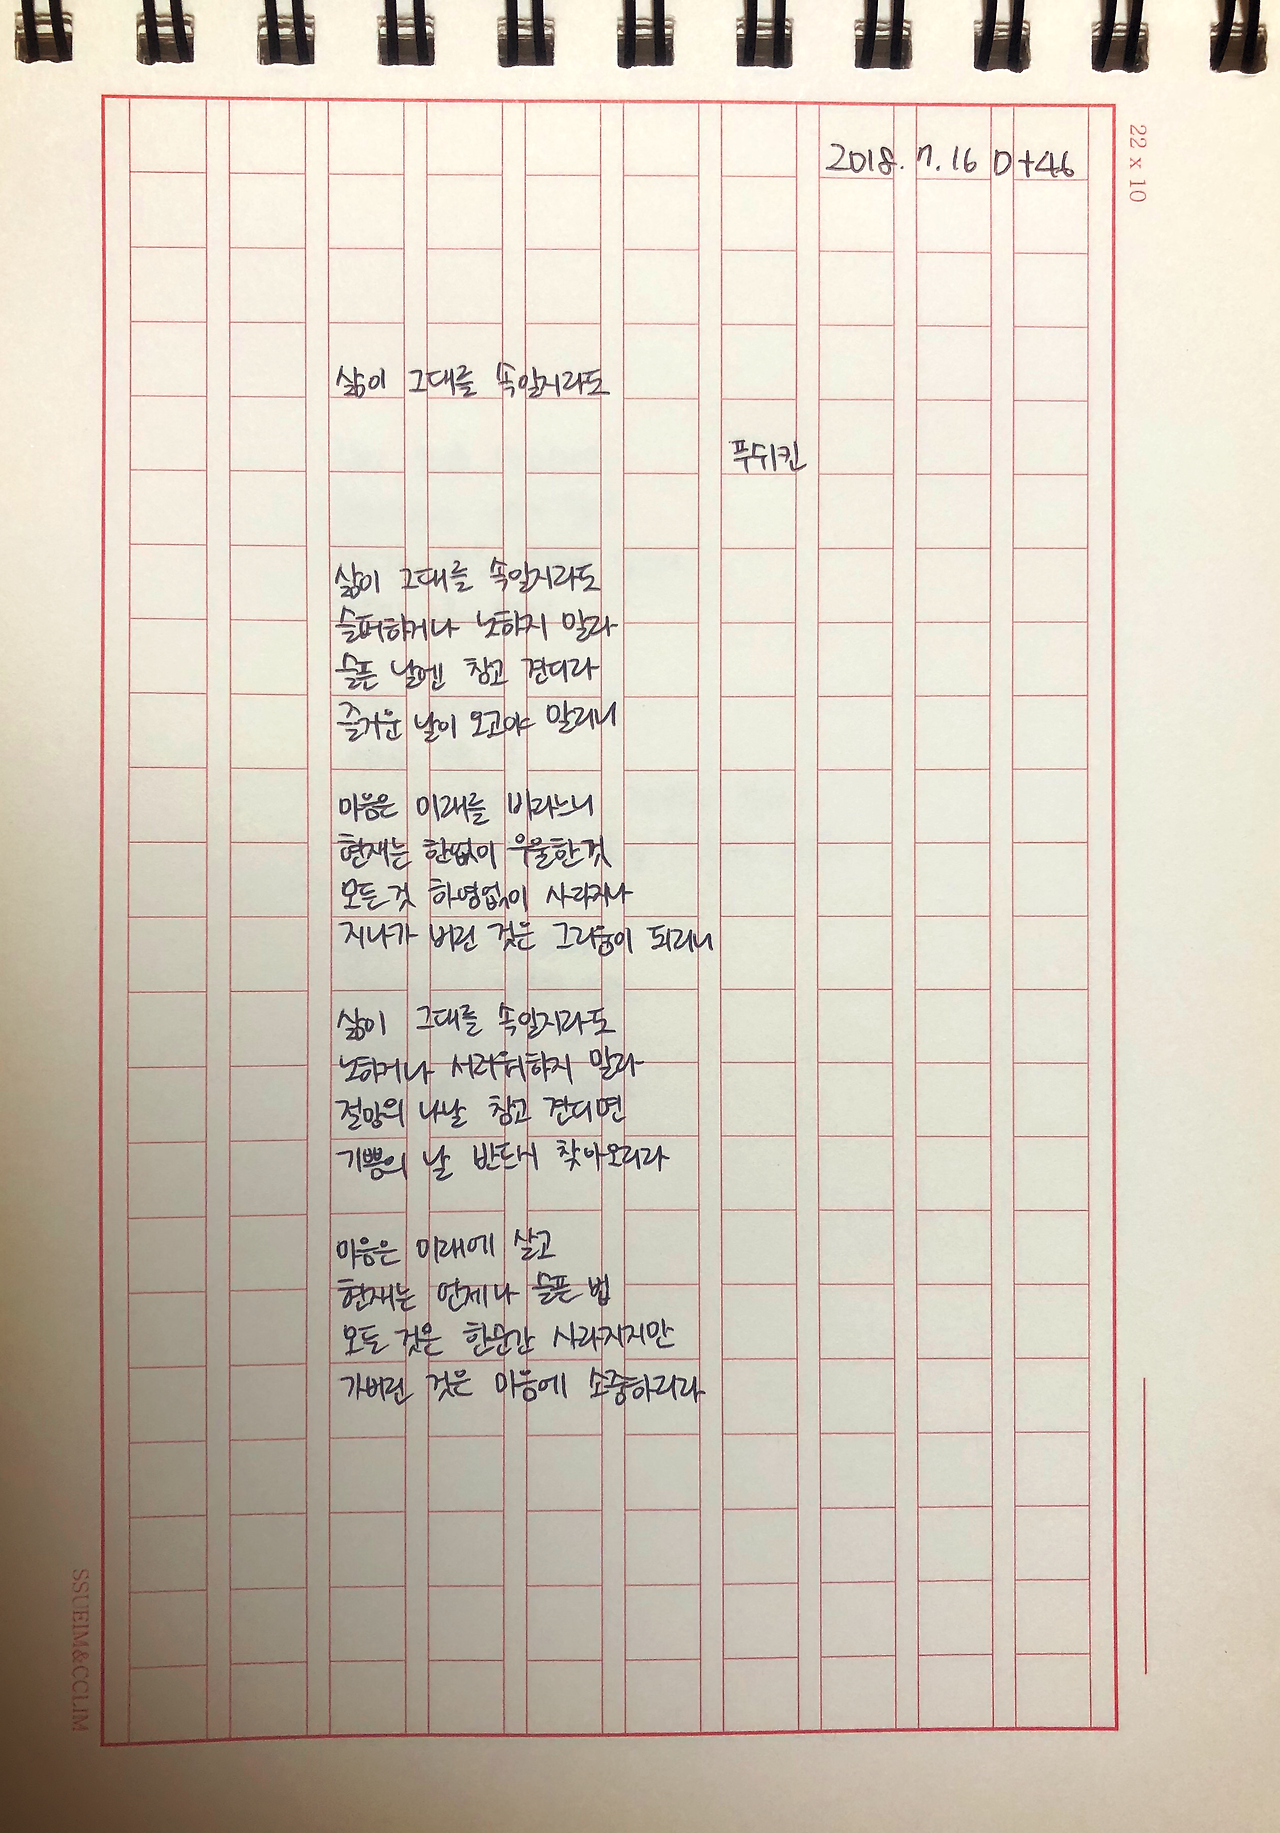 22 x 10
2018. 7. 16 D+46
삶이 그대를 속일지라도
푸쉬킨
삶이 그대를 속일지라도
슬퍼하거나 노하지 말라
슬픈 날엔 참고 견디라
즐거운 날이 오고야 말리니
마음은 미래를 바라느니
현재는 한없이 우울한것
모든것 하염없이 사라지나
지나가 버린 것은 그리움이 되리니
삶이 그대를 속일지라도
노하거나 서러워하지 말라
절망의 나날 참고 견디면
기쁨의 날 반드시 찾아오리라
마음은 미래에 살고
현재는 언제나 슬픈 법
모든 것은 한순간 사라지지만
가버린 것은 마음에 소중하리라
SSUEIM&CCLIM